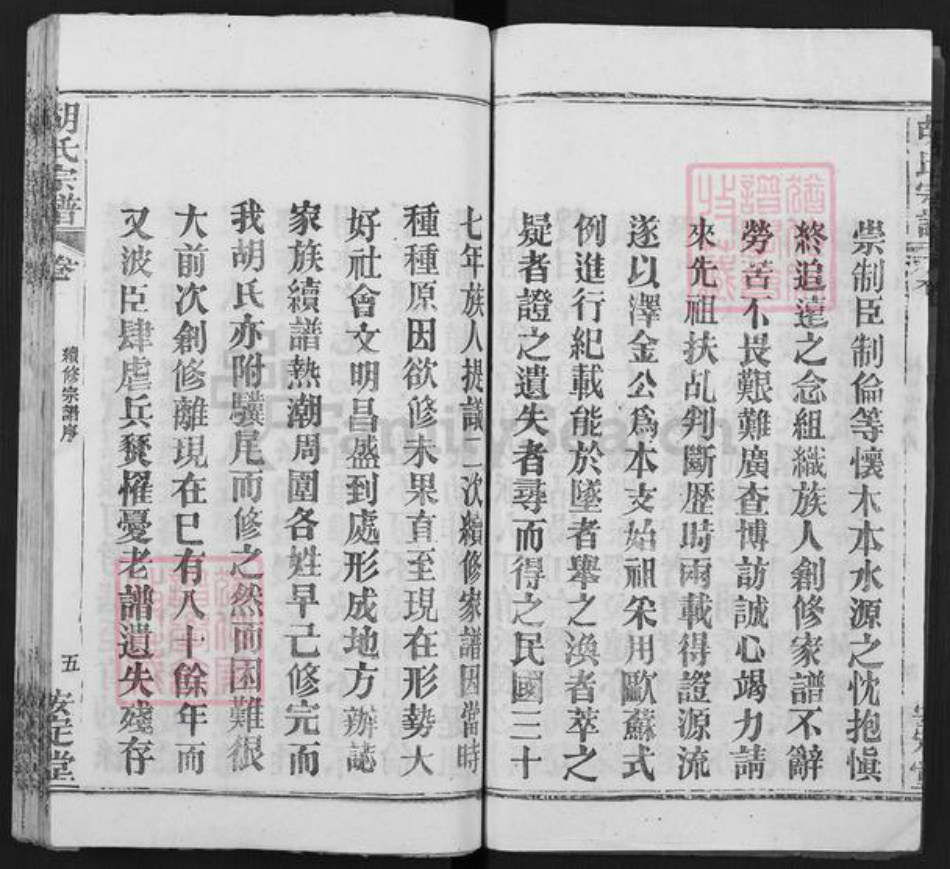 崇制臣制倫等懷木本水源之忱抱愼
終追遠之念組織族人創修家譜不辭
勞苦不畏艱難廣查博訪誠心竭力請
來先祖扶乩判斷歷時兩載得證源流
遂以澤金公爲本支始祖采用歐蘇式
例進行紀載能於墜者舉之渙者萃之
疑者證之遺失者尋而得之民國三十
七年族人提議二次續修家譜因當時
種種原因欲修未果直至現在形勢大
好社會文明昌盛到處形成地方辦誌
家族續譜熱潮周圍各姓早己修完而
我胡氏亦附驥尾而修之然而困難很
大前次創修離現在巳有八十餘年而
又波臣肆虐兵燹懼憂老譜遺失殘存
胡氏宗譜
卷
續修宗譜序
五
安定堂
FamilySearch